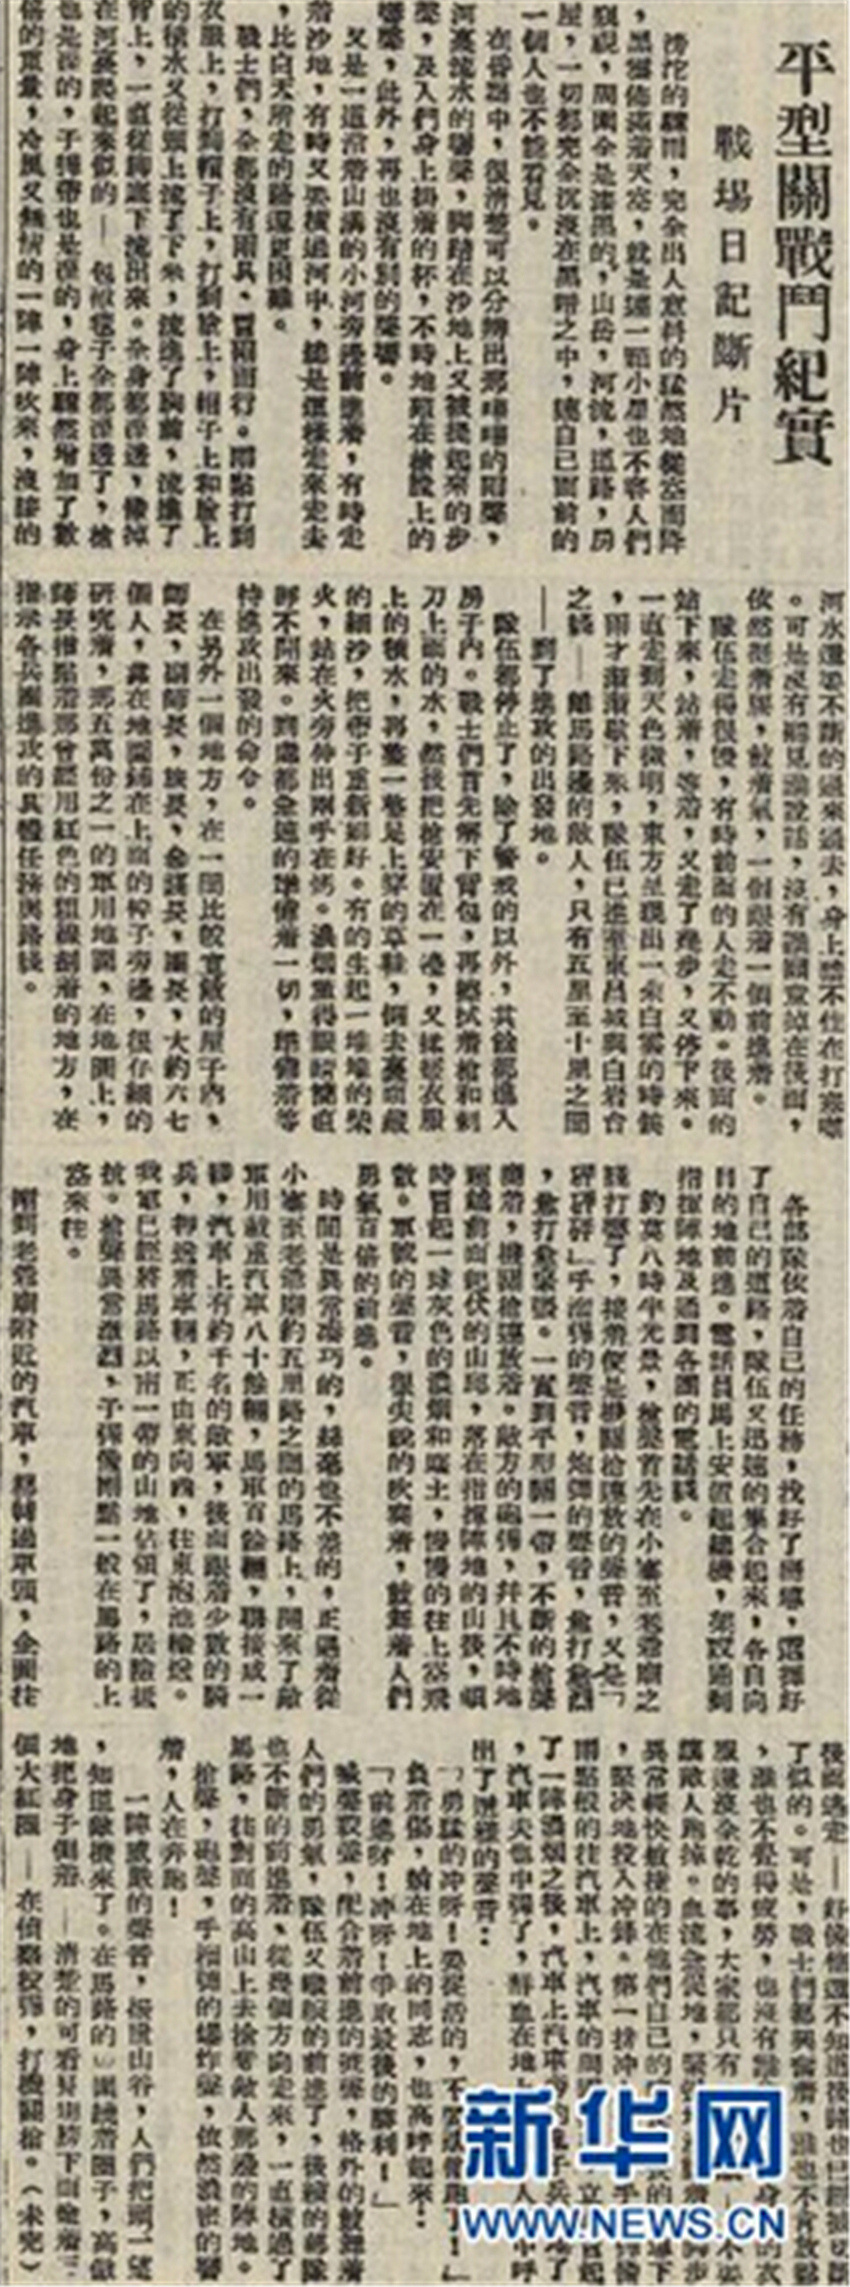 平型關戰鬥紀實
戰場日記斷片
滂沱的驟雨，完全出人意料的猛然地從空而降
，黑雲佈滿着天空，就是連一顆小星也不容人們
窺視，周圍全是漆黑的，山岳，河流，道路，房
屋，一切都完全沉沒在黑暗之中，連自己面前的
一個人也不能看見。
在昏黑中，很清楚可以分辨出那嘩嘩的雨聲，
河裏流水的響聲，脚踏在沙地上又被提起來的步
聲，及人們身上掛着的杯，不時地碰在槍殼上的
響聲，此外，再也沒有別的聲響。
又是一道沿着山溝的小河旁邊前進着，有時走
着沙地，有時又要橫過河中，總是這樣走來走去
，比白天所走的路還更困難。
戰士們，全都沒有雨具，冒雨而行。雨點打到
衣服上，打到帽子上，打到臉上，帽子上和臉上
的積水又從頭上流了下來，流進了胸前，流進了
背上，一直從脚底下流出來。全身都浮透，像掉
在河裏爬起來似的——包袱毯子全都浮透了，槍
也是濕的，子彈帶也是濕的，身上驟然增加了數
倍的重量，冷風又無情的一陣一陣吹來，沒膝的
河水還要不斷的過來過去，身上禁不住在打寒噤
。可是沒有聽見誰說話，沒有誰願意掉在後面，
依然挺着腰，鼓着氣，一個跟着一個前進着。
隊伍走得很慢，有時前面的人走不動。後面的
站下來，站着，等着，又走了幾步，又停下來。
一直走到天色微明，東方呈現出一朵白雲的時候
，雨才漸漸歇下來，隊伍已進至東昌城與白岩台
之綫——離馬路邊的敵人，只有五里至十里之間
——到了進攻的出發地。
隊伍都停止了，除了警戒的以外，其餘都進入
房子內。戰士們首先解下背包，再擦拭着槍和刺
刀上面的水，然後把槍安置在一邊，又揉搓衣服
上的積水，再整一整足上穿的草鞋，倒去裏頭藏
的細沙，把帶子重新綁好。有的生起一堆堆的柴
火，站在火旁伸出兩手在烤。濃烟熏得眼睛簡直
睜不開來。到處都急速的準備着一切，準備着等
待進攻出發的命令。
在另外一個地方，在一間比較寬敞的屋子內，
師長，副師長，旅長，參謀長，團長，大約六七
個人，靠在地圖鋪在上面的桌子旁邊，很仔細的
研究着，那五萬份之一的軍用地圖，在地圖上，
師長指點着那曾經用紅色的粗線劃着的地方，在
指示各兵團進攻的具體任務與路綫。
各部隊依着自己的任務，找好了嚮導，選擇好
了自己的道路，隊伍又迅速的集合起來，各自向
目的地前進。電話員馬上安置起總機，架設通到
指揮陣地及通到各團的電話綫。
約莫八時半光景，槍聲首先在小寨至老爺廟之
綫打響了，接着便是機關槍連放的聲音，又是「
砰砰砰」手溜彈的聲音，炮彈的聲音，愈打愈烈
，愈打愈緊張。一直到平型關一帶，不斷的槍聲
響着，機關槍連放着。敵方的砲彈，幷且不時地
超越前面起伏的山邱，落在指揮陣地的山後，頓
時冒起一球灰色的濃烟和塵土，慢慢的往上空飛
散。軍號的聲音，很尖銳的吹奏着，鼓舞着人們
勇氣百倍的前進。
時間是異常湊巧的，絲毫也不差的，正遇着從
小寨至老爺廟約五里路之間的馬路上，開來了敵
軍用載重汽車八十餘輛，馬車百餘輛，聯接成一
綫，汽車上有約千名的敵軍，後面跟着少數的騎
兵，押送着車輛，正由東向西，往東泡池輸送。
我軍已經將馬路以南一帶的山地佔領了，居險抵
抗。槍聲異常激烈，子彈像雨點一般在馬路的上
空來往。
剛到老爺廟附近的汽車，急轉過車頭，企圖往
後面逃走——好像他還不知道後歸也已經被切斷
了似的。可是，戰士們都興奮着，誰也不肯放鬆
，誰也不覺得疲勞，也沒有
服還沒全乾的事，大家都只有
讓敵人跑掉。血流全從地，
異常輕快敏捷的在他們自己的
，堅决地投入冲鋒。第一排冲
雨點般的往汽車上，汽車的周圍
了一陣濃烟之後，汽車上汽車旁的
，汽車夫也中彈了，鮮血在地上
出了這樣的聲音：
「勇猛的冲呀！要捉活的，不
負着傷，躺在地上的同志，也高呼起來：
「前進呀！冲呀！爭取最後的勝利！」
喊聲殺聲，配合着前進的號聲，格外的鼓舞着
人們的勇氣，隊伍又繼續的前進了，後續的部隊
也不斷的前進着，從幾個方向走來，一直橫過了
馬路，往對面的高山上去搶奪敵人那邊的陣地。
槍聲，砲聲，手溜彈的爆炸聲，依然濃密的響
着，人在奔跑！
一陣威嚴的聲音，振震山谷，人們把頭一望
，知道敵機來了。在馬路的周圍繞着圈子，高傲
地把身子側着——清楚的可看見兩膀下面塗着二
個大紅圓——在偵察投彈，打機關槍。（未完）
新华网
WWW.NEWS.CN